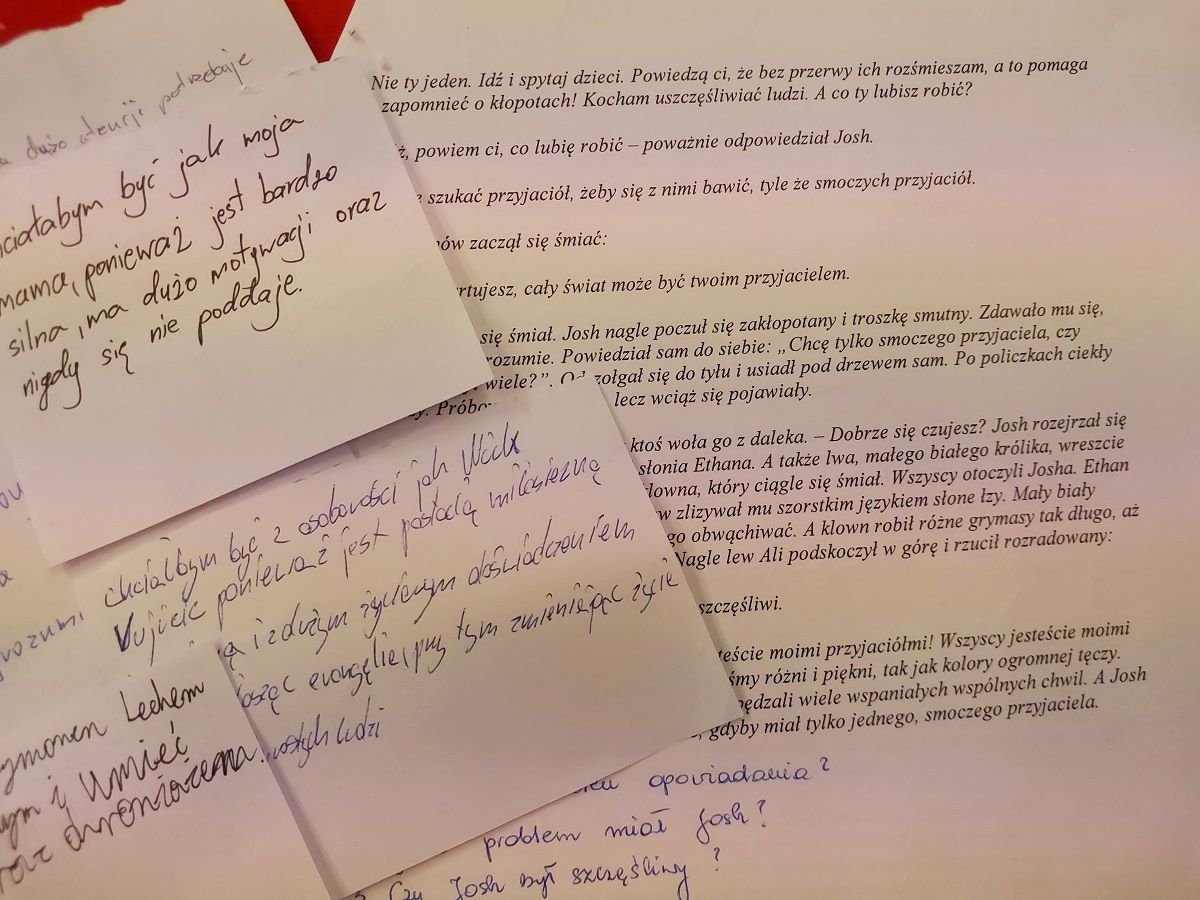 dużo atencji potrzebuje
chciałabym być jak moja
mama, ponieważ jest bardzo
silna, ma dużo motywacji oraz
nigdy się nie poddaje.
chciałbym być z osobowości jak Nick
Vujicic ponieważ jest postacią
ą i z dużym życiowym doświadczeniem
osząc ewangelie, przy tym zmieniając życie
ludzi
rozumi
Lechem
ym i Umieć
Nie ty jeden. Idź i spytaj dzieci. Powiedzą ci, że bez przerwy ich rozśmieszam, a to pomaga
zapomnieć o kłopotach! Kocham uszczęśliwiać ludzi. A co ty lubisz robić?
ż, powiem ci, co lubię robić – poważnie odpowiedział Josh.
szukać przyjaciół, żeby się z nimi bawić, tyle że smoczych przyjaciół.
ów zaczął się śmiać:
rtujesz, cały świat może być twoim przyjacielem.
się śmiał. Josh nagle poczuł się zakłopotany i troszkę smutny. Zdawało mu się,
rozumie. Powiedział sam do siebie: „Chcę tylko smoczego przyjaciela, czy
wiele?”. Od zołgał się do tyłu i usiadł pod drzewem sam. Po policzkach ciekły
y. Próbo lecz wciąż się pojawiały.
ktoś woła go z daleka. – Dobrze się czujesz? Josh rozejrzał się
słonia Ethana. A także lwa, małego białego królika, wreszcie
klowna, który ciągle się śmiał. Wszyscy otoczyli Josha. Ethan
w zlizywał mu szorstkim językiem słone łzy. Mały biały
go obwąchiwać. A klown robił różne grymasy tak długo, aż
Nagle lew Ali podskoczył w górę i rzucił rozradowany:
szczęśliwi.
teście moimi przyjaciółmi! Wszyscy jesteście moimi
śmy różni i piękni, tak jak kolory ogromnej tęczy.
pędzali wiele wspaniałych wspólnych chwil. A Josh
, gdyby miał tylko jednego, smoczego przyjaciela.
opowiadania?
problem miał Josh?
Czy Josh był szczęśliwy?